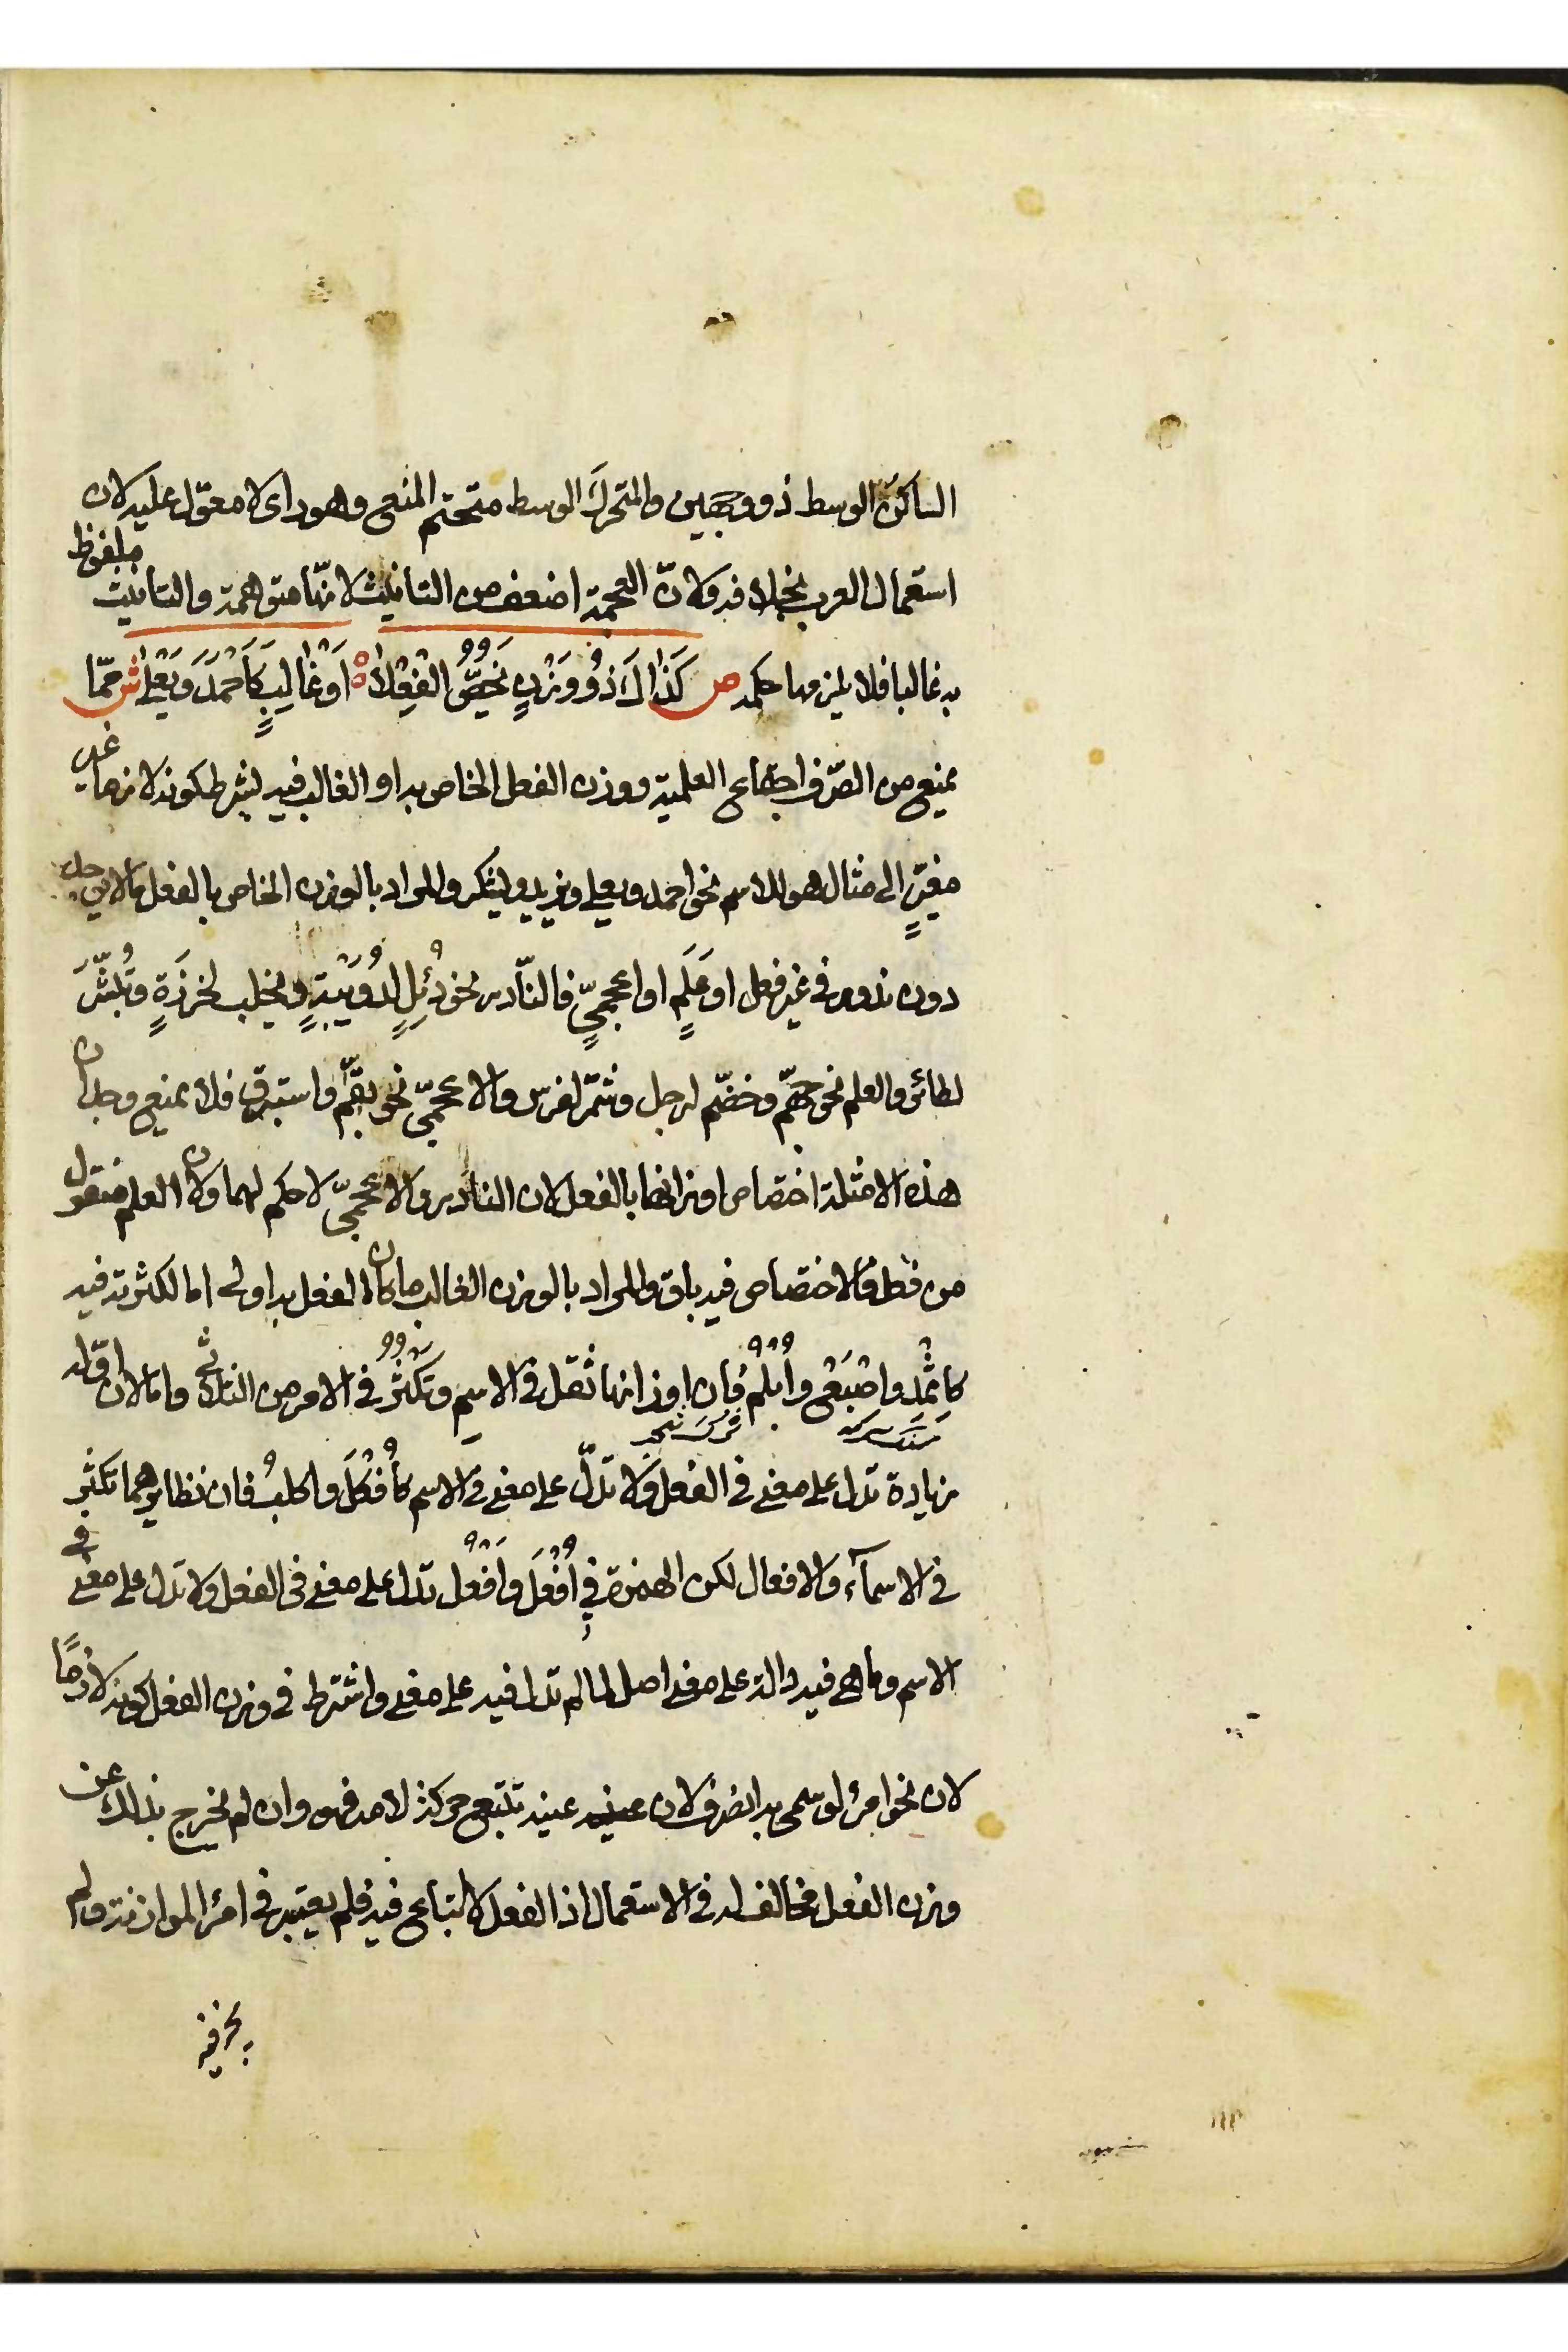 الساكن الوسط ذو وجهين والمتحرك الوسط متحتم المنع وهو راى لا معوّل عليه لان
استعمال العرب بخلافه ولانّ العجمة اضعف من التانيث لانّها متوهمة والتانيث ملفوظ
به غالبا فلا يلزمها حكمه ص كَذَاكَ ذُو وَزْنٍ يَخُصُّ الْفِعْلَا ه اَوْ غَالِبٍ كَاَحْمَدَ وَيَعْلَى ش ممّا
يمنع من الصّرف اجتماع العلمية ووزن الفعل الخاص به او الغالب فيه بشرط كونه لازما غير
مغيّرٍ الى مثال هو للاسم نحو احمد ويعلى ويزيد ويشكر والمراد بالوزن الخاص بالفعل مالا يوجد
دون ندور فى غير فعل او عَلَمٍ او اعجميٍّ فالنّادر نحو دُئِلٍ لدُوَيْبَةٍ وينجلب لخرزَةٍ وتُبُشِّرَ
لطائر والعلم نحو خضّم لرجل وشمّر لفرس والاعجميّ نحو بقّم واستبرق فلا يمنع وجدان
هذه الامثلة اختصاص اوزانها بالفعل لان النادر والاعجميّ لا حكم لهما ولان العلم منقول
من فعل فالاختصاص فيه باق والمراد بالوزن الغالب ما كان الفعل به اولى اما لكثرته فيه
كاِثْمِدٍ واِصْبَعٍ واُبْلُمٍ فان اوزانها تقل فى الاسم وتكثُرُ فى الامر من الثلاثى واما لان اوّله
سنك سرمه
زيادة تدل على معنى فى الفعل ولا تدلّ على معنى فى الاسم كاَفْكَلَ واكلبُ فان نظايرهما تكثر
فى الاسمآء والافعال لكن الهمزة فى اَفْعَلَ واَفْعُل تدل على معنى فى الفعل ولا تدل على معنى فى
الاسم وما هى فيه دالة على معنى اصل لما لم تدل فيه على معنى واشترط فى وزن الفعل كونه لازمًا
لان نحو امرئ لو سمى به انصرف لان عينه عينه تتبع حركة لامه فهو وان لم يخرج بذالك عن
وزن الفعل مخالف له فى الاستعمال اذ الفعل لا اتباع فيه فلم يعتبر فى امرئ الموازنة ولم
يجز فيه